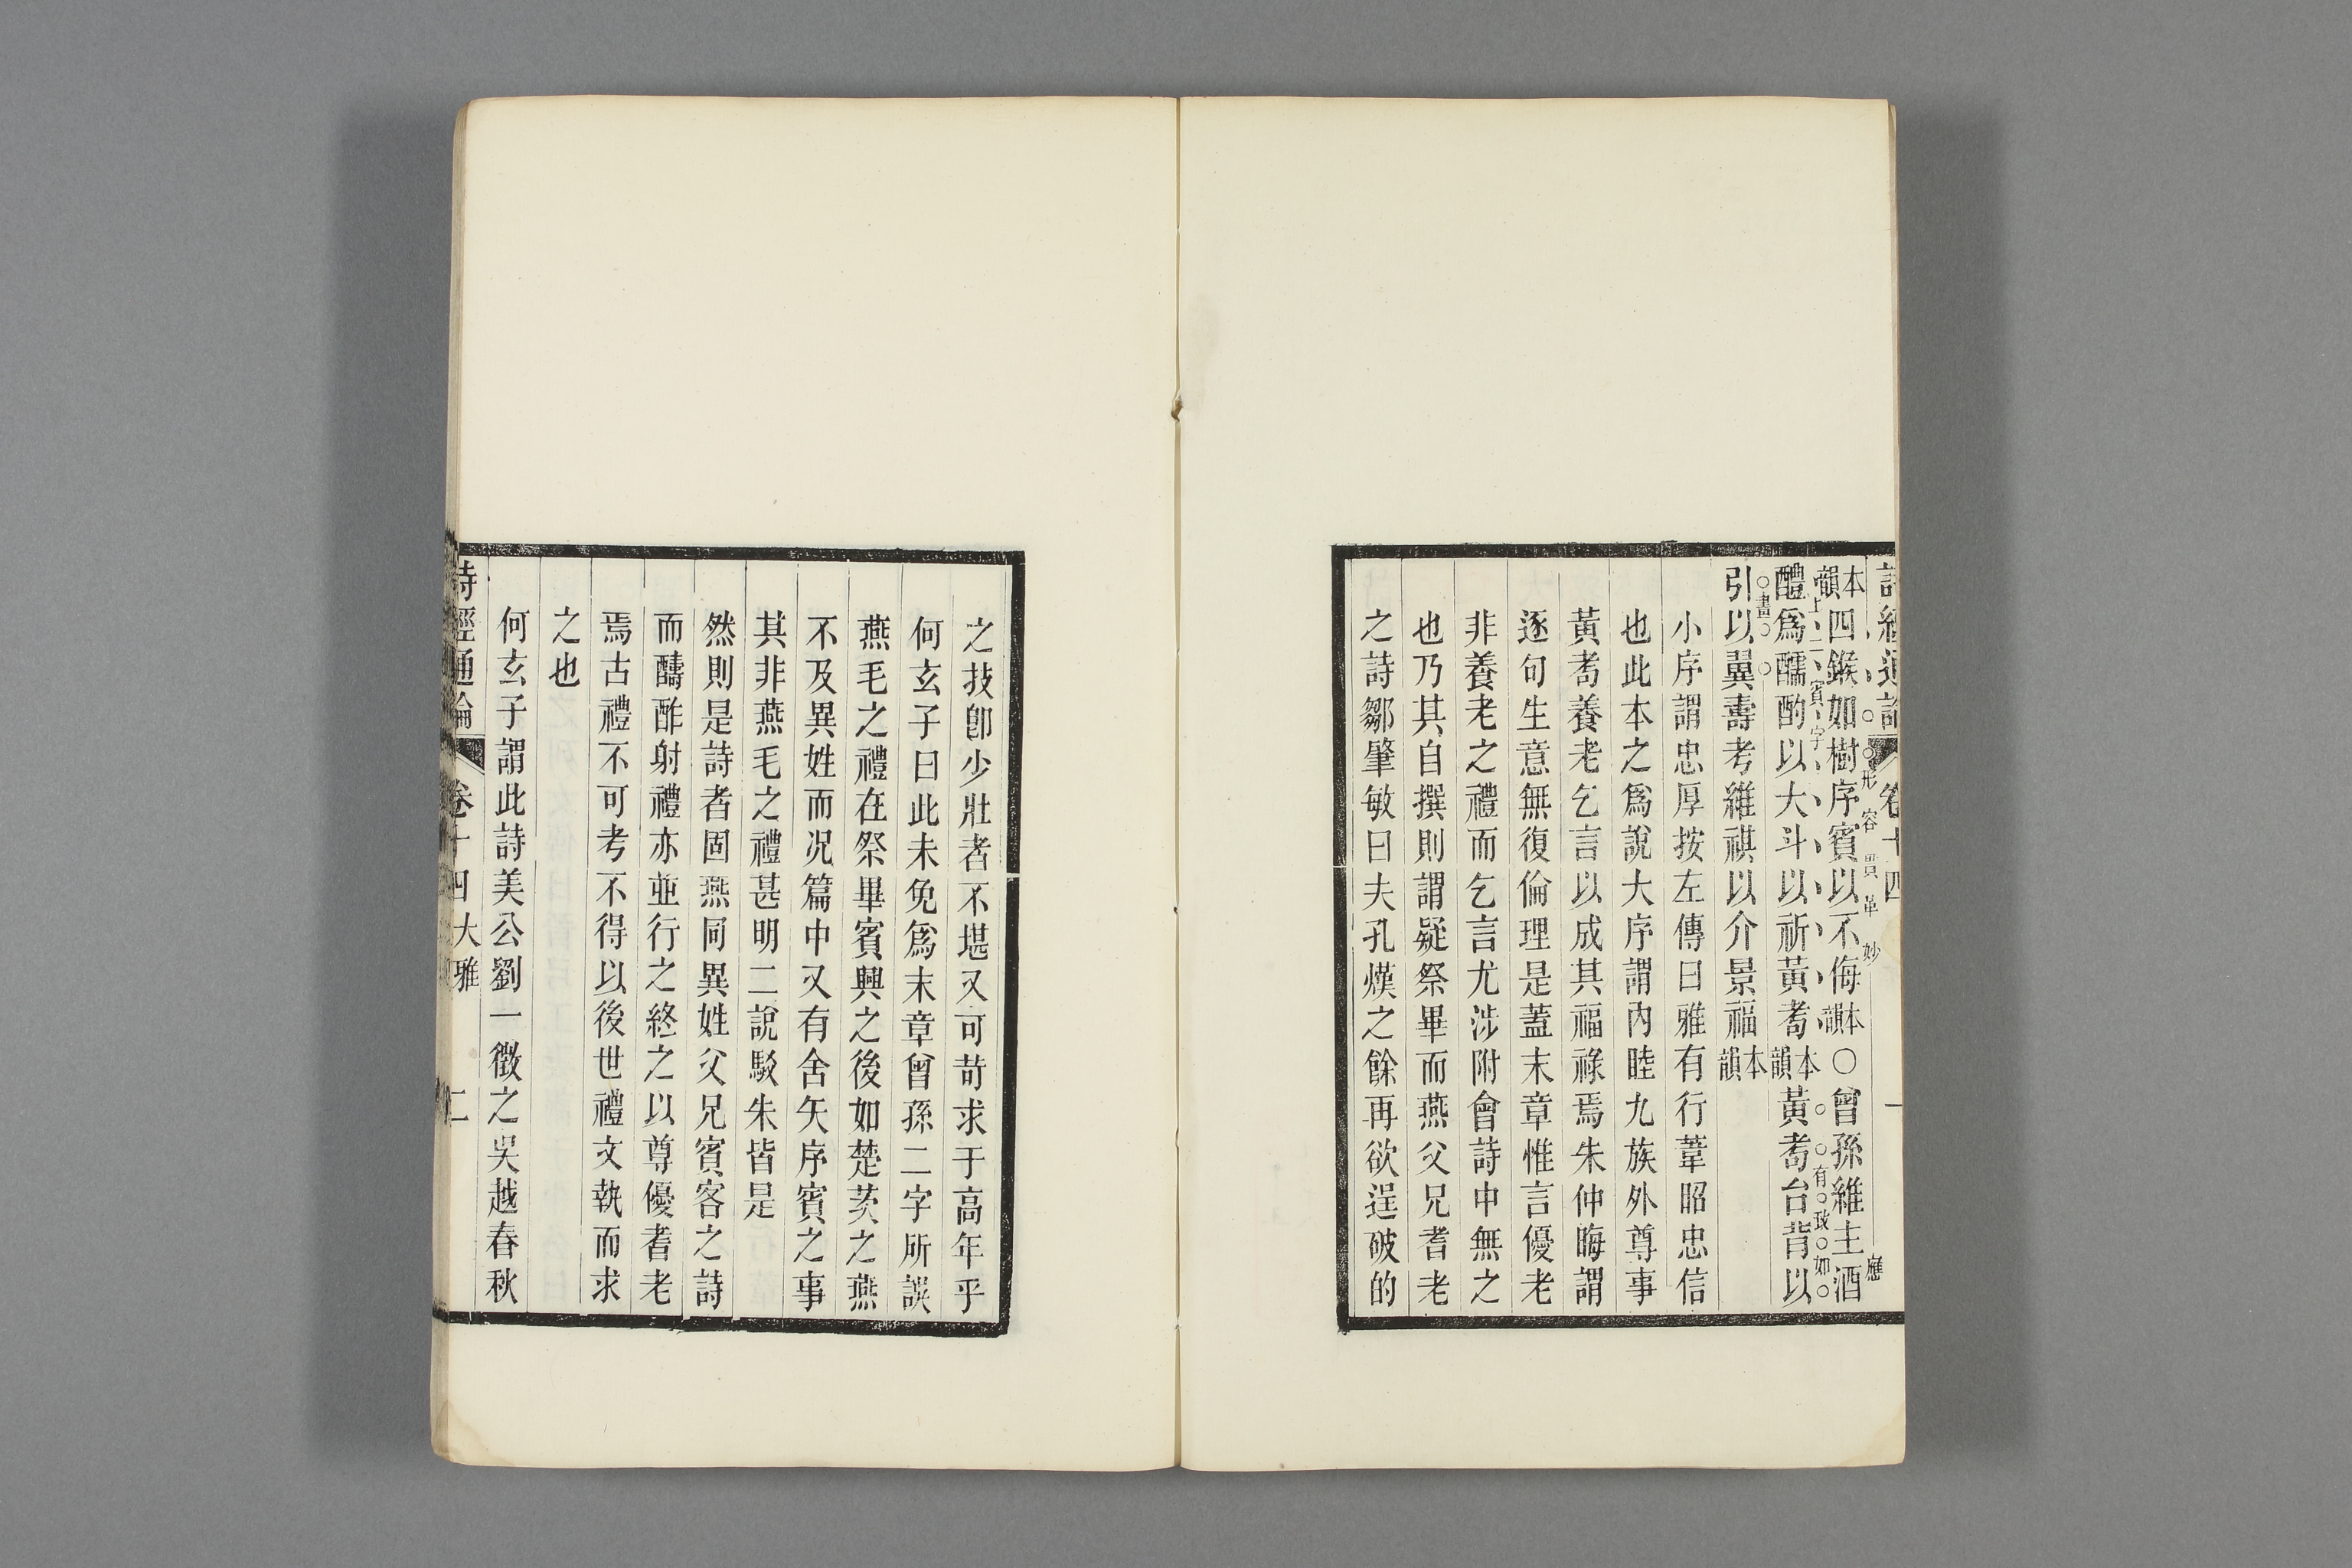 詩經通論 卷十四 一
本韻四鍭如樹序賓以不侮本韻○曾孫維主酒
形容貫革妙 應
醴爲醹酌以大斗以祈黃耇本韻黃耇台背以
上二賓字 有致如
引以翼壽考維祺以介景福本韻
畫
小序謂忠厚按左傳曰雅有行葦昭忠信
也此本之爲說大序謂內睦九族外尊事
黃耇養老乞言以成其福祿焉朱仲晦謂
逐句生意無復倫理是蓋末章惟言優老
非養老之禮而乞言尤涉附會詩中無之
也乃其自撰則謂疑祭畢而燕父兄耆老
之詩鄒肇敏曰夫孔熯之餘再欲逞破的
之技卽少壯者不堪又可苛求于高年乎
何玄子曰此未免爲末章曾孫二字所誤
燕毛之禮在祭畢賓興之後如楚茨之燕
不及異姓而况篇中又有舍矢序賓之事
其非燕毛之禮甚明二說駁朱皆是
然則是詩者固燕同異姓父兄賓客之詩
而醻酢射禮亦並行之終之以尊優耆老
焉古禮不可考不得以後世禮文執而求
之也
何玄子謂此詩美公劉一徵之吳越春秋
詩經通論 卷十四大雅 二